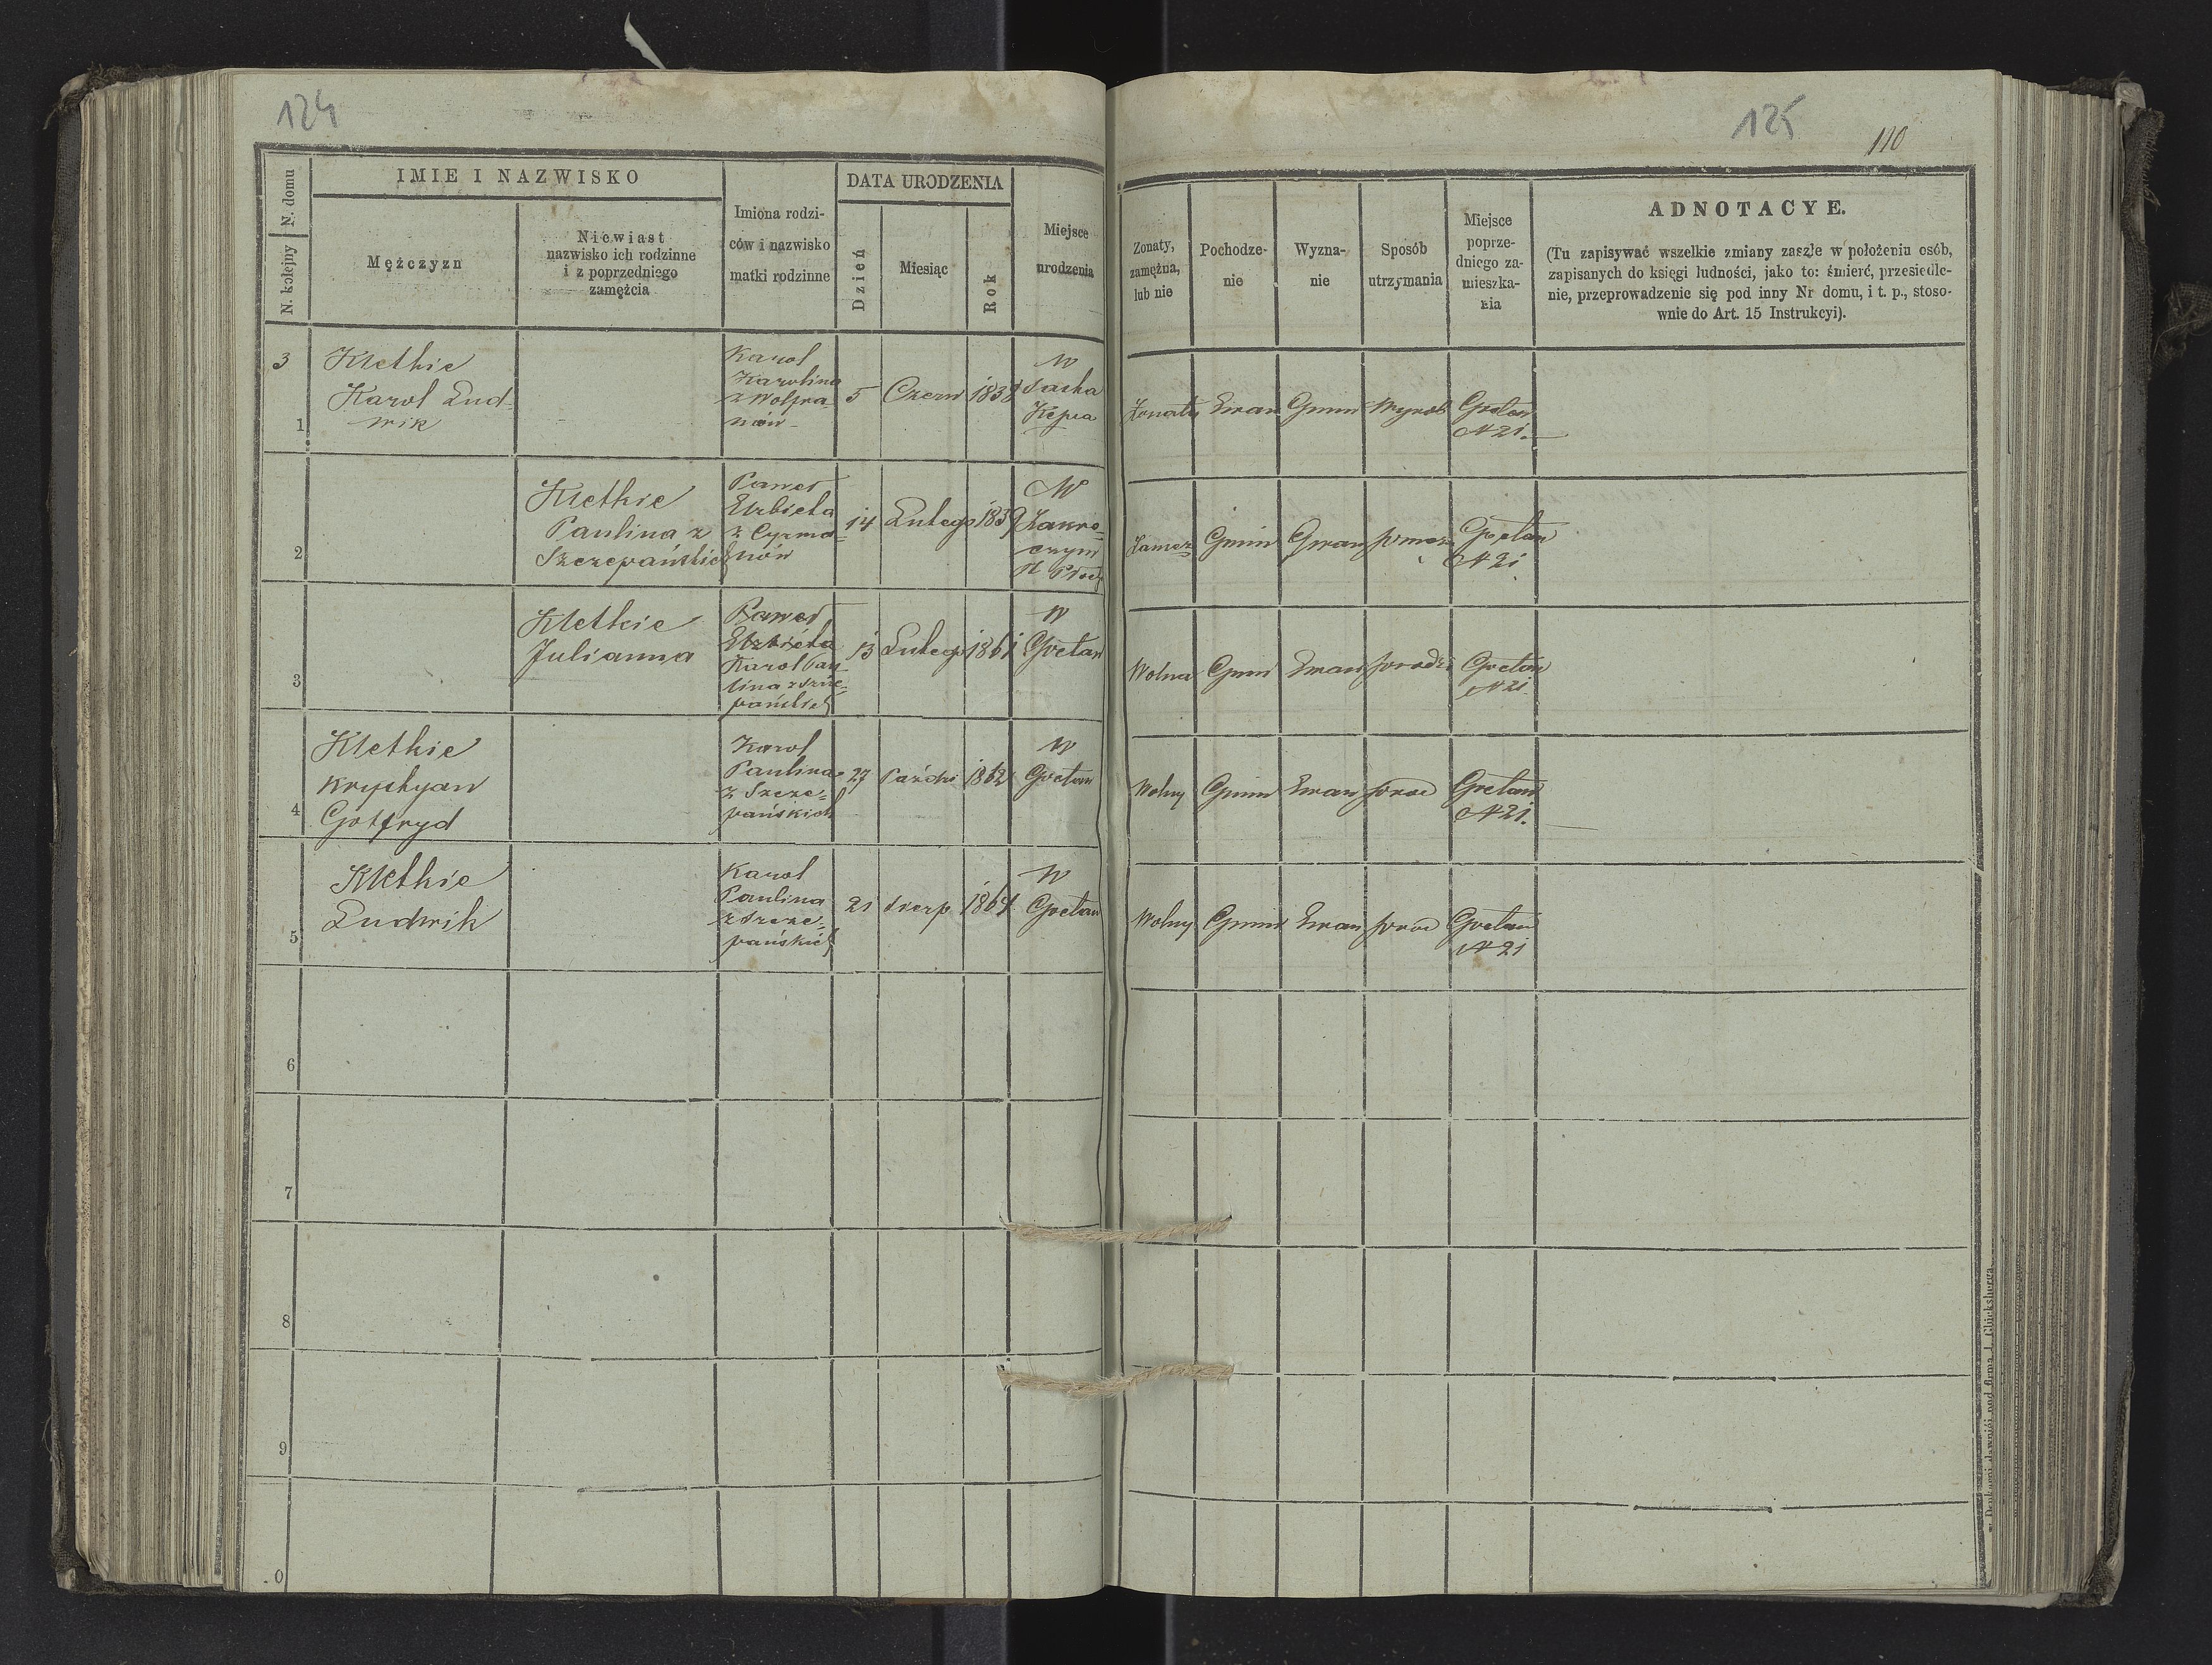 124
125
110
N. kolejny N. domu
IMIE I NAZWISKO
Mężczyzn
Niewiast
nazwisko ich rodzinne
i z poprzedniego
zamężcia
Imiona rodzi-
ców i nazwisko
matki rodzinne
DATA URODZENIA
Dzień
Miesiąc
Rok
Miejsce
urodzenia
Zonaty,
zamężna,
lub nie
Pochodze-
nie
Wyzna-
nie
Sposób
utrzymania
Miejsce
poprze-
dniego za-
mieszka-
nia
ADNOTACYE.
(Tu zapisywać wszelkie zmiany zaszłe w położeniu osób,
zapisanych do księgi ludności, jako to: śmierć, przesiedle-
nie, przeprowadzenie się pod inny Nr domu, i t. p., stoso-
wnie do Art. 15 Instrukcyi).
3
1
Klethie
Karol Lud-
wik
Karol
Karolina
z Wolfra-
mów
5 Czerw 1838
W
Saska
Kępa
Żonaty Ewan Gmin Wyrob
N 21.
2
Klethie
Paulina z
Szczepańskich
Paweł
Elzbieta
14 Lutego 1839
W
Zakro-
czym
Zamęz Gmin Ewan
N 21
3
Klethie
Julianna
Paweł
Elzbieta
Karol Pau-
lina z Szcze-
pańskich
13 Lutego 1861
W
Wolna Gmin Ewan
N 21.
4
Klethie
Krystyan
Gotfryd
Karol
Paulina
z Szcze-
pańskich
27 Paździ 1862
W
Wolny Gmin Ewan
N 21.
5
Klethie
Ludwik
Karol
Paulina
z Szcze-
pańskich
21 Sierp 1864
W
Wolny Gmin Ewan
N 21
6
7
8
9
0
w Drukarni dawniéj pod firmą J. Glücksberga